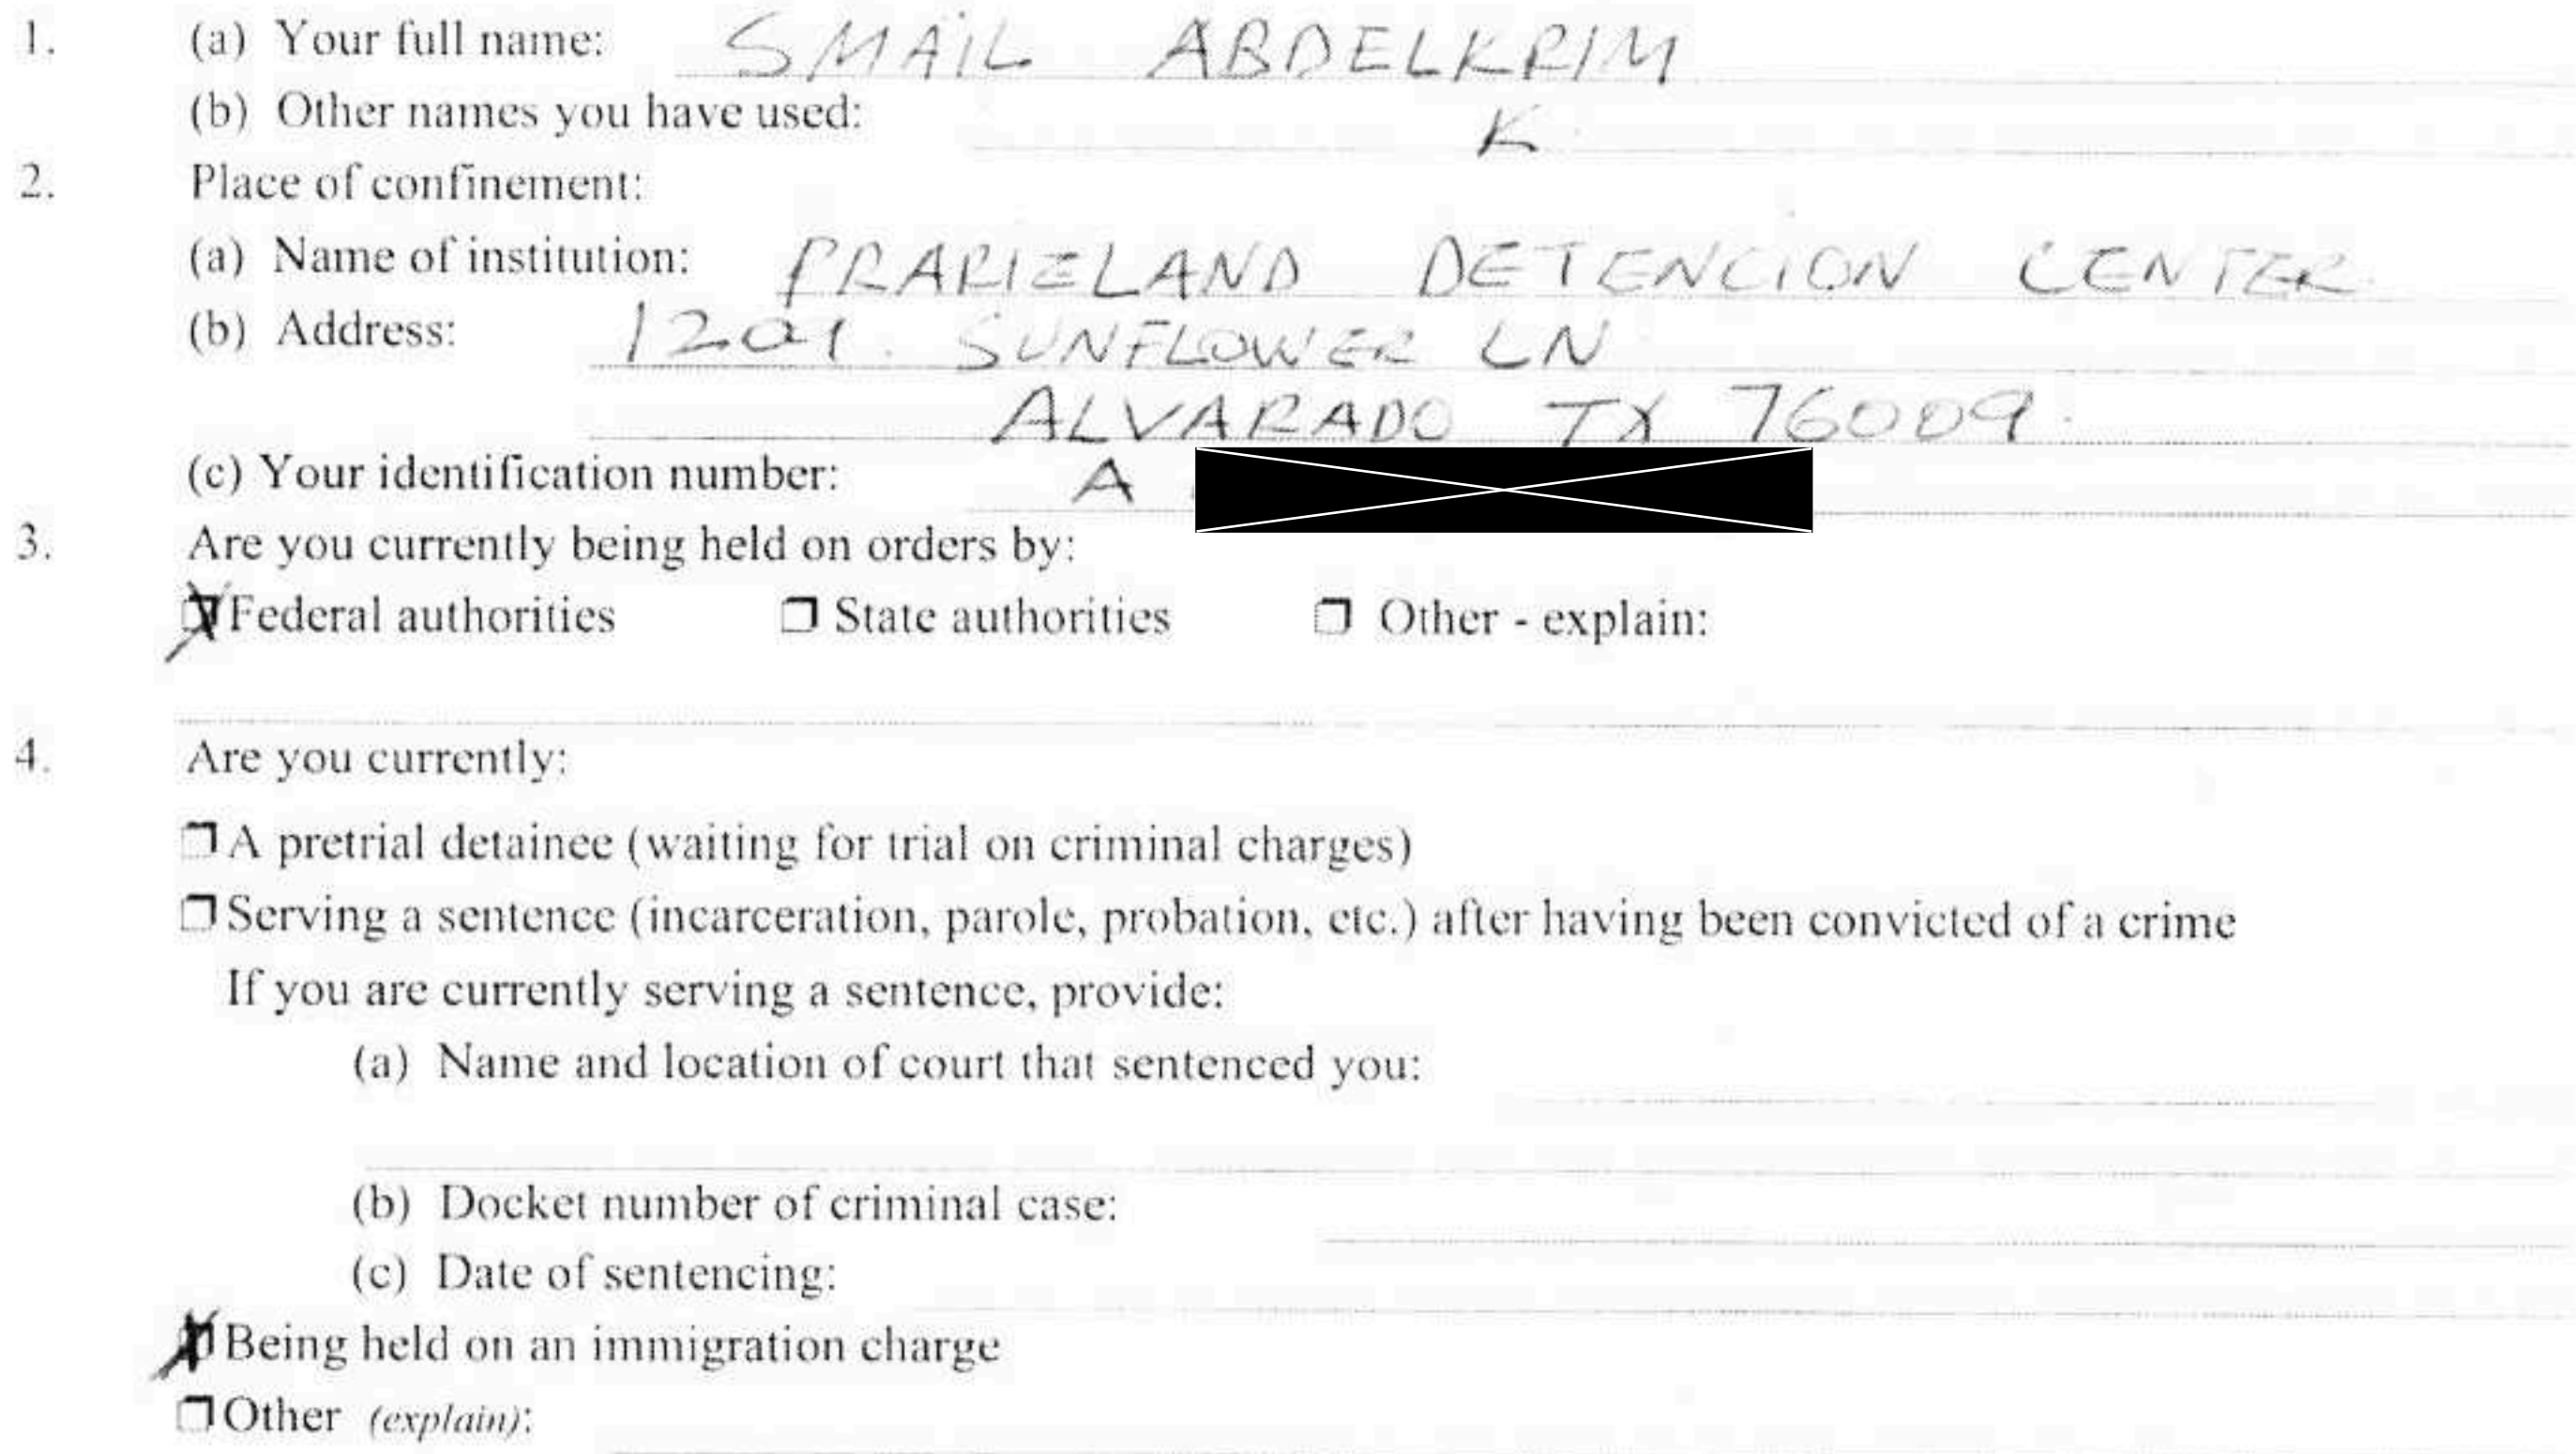 1. (a) Your full name: SMAIL ABDELKRIM
(b) Other names you have used: K
2. Place of confinement:
(a) Name of institution: PRARIELAND DETENCION CENTER
(b) Address: 1201. SUNFLOWER LN
ALVARADO TX 76009.
(c) Your identification number: A
3. Are you currently being held on orders by:
Federal authorities State authorities Other - explain:
4. Are you currently:
A pretrial detainee (waiting for trial on criminal charges)
Serving a sentence (incarceration, parole, probation, etc.) after having been convicted of a crime
If you are currently serving a sentence, provide:
(a) Name and location of court that sentenced you:
(b) Docket number of criminal case:
(c) Date of sentencing:
Being held on an immigration charge
Other (explain):